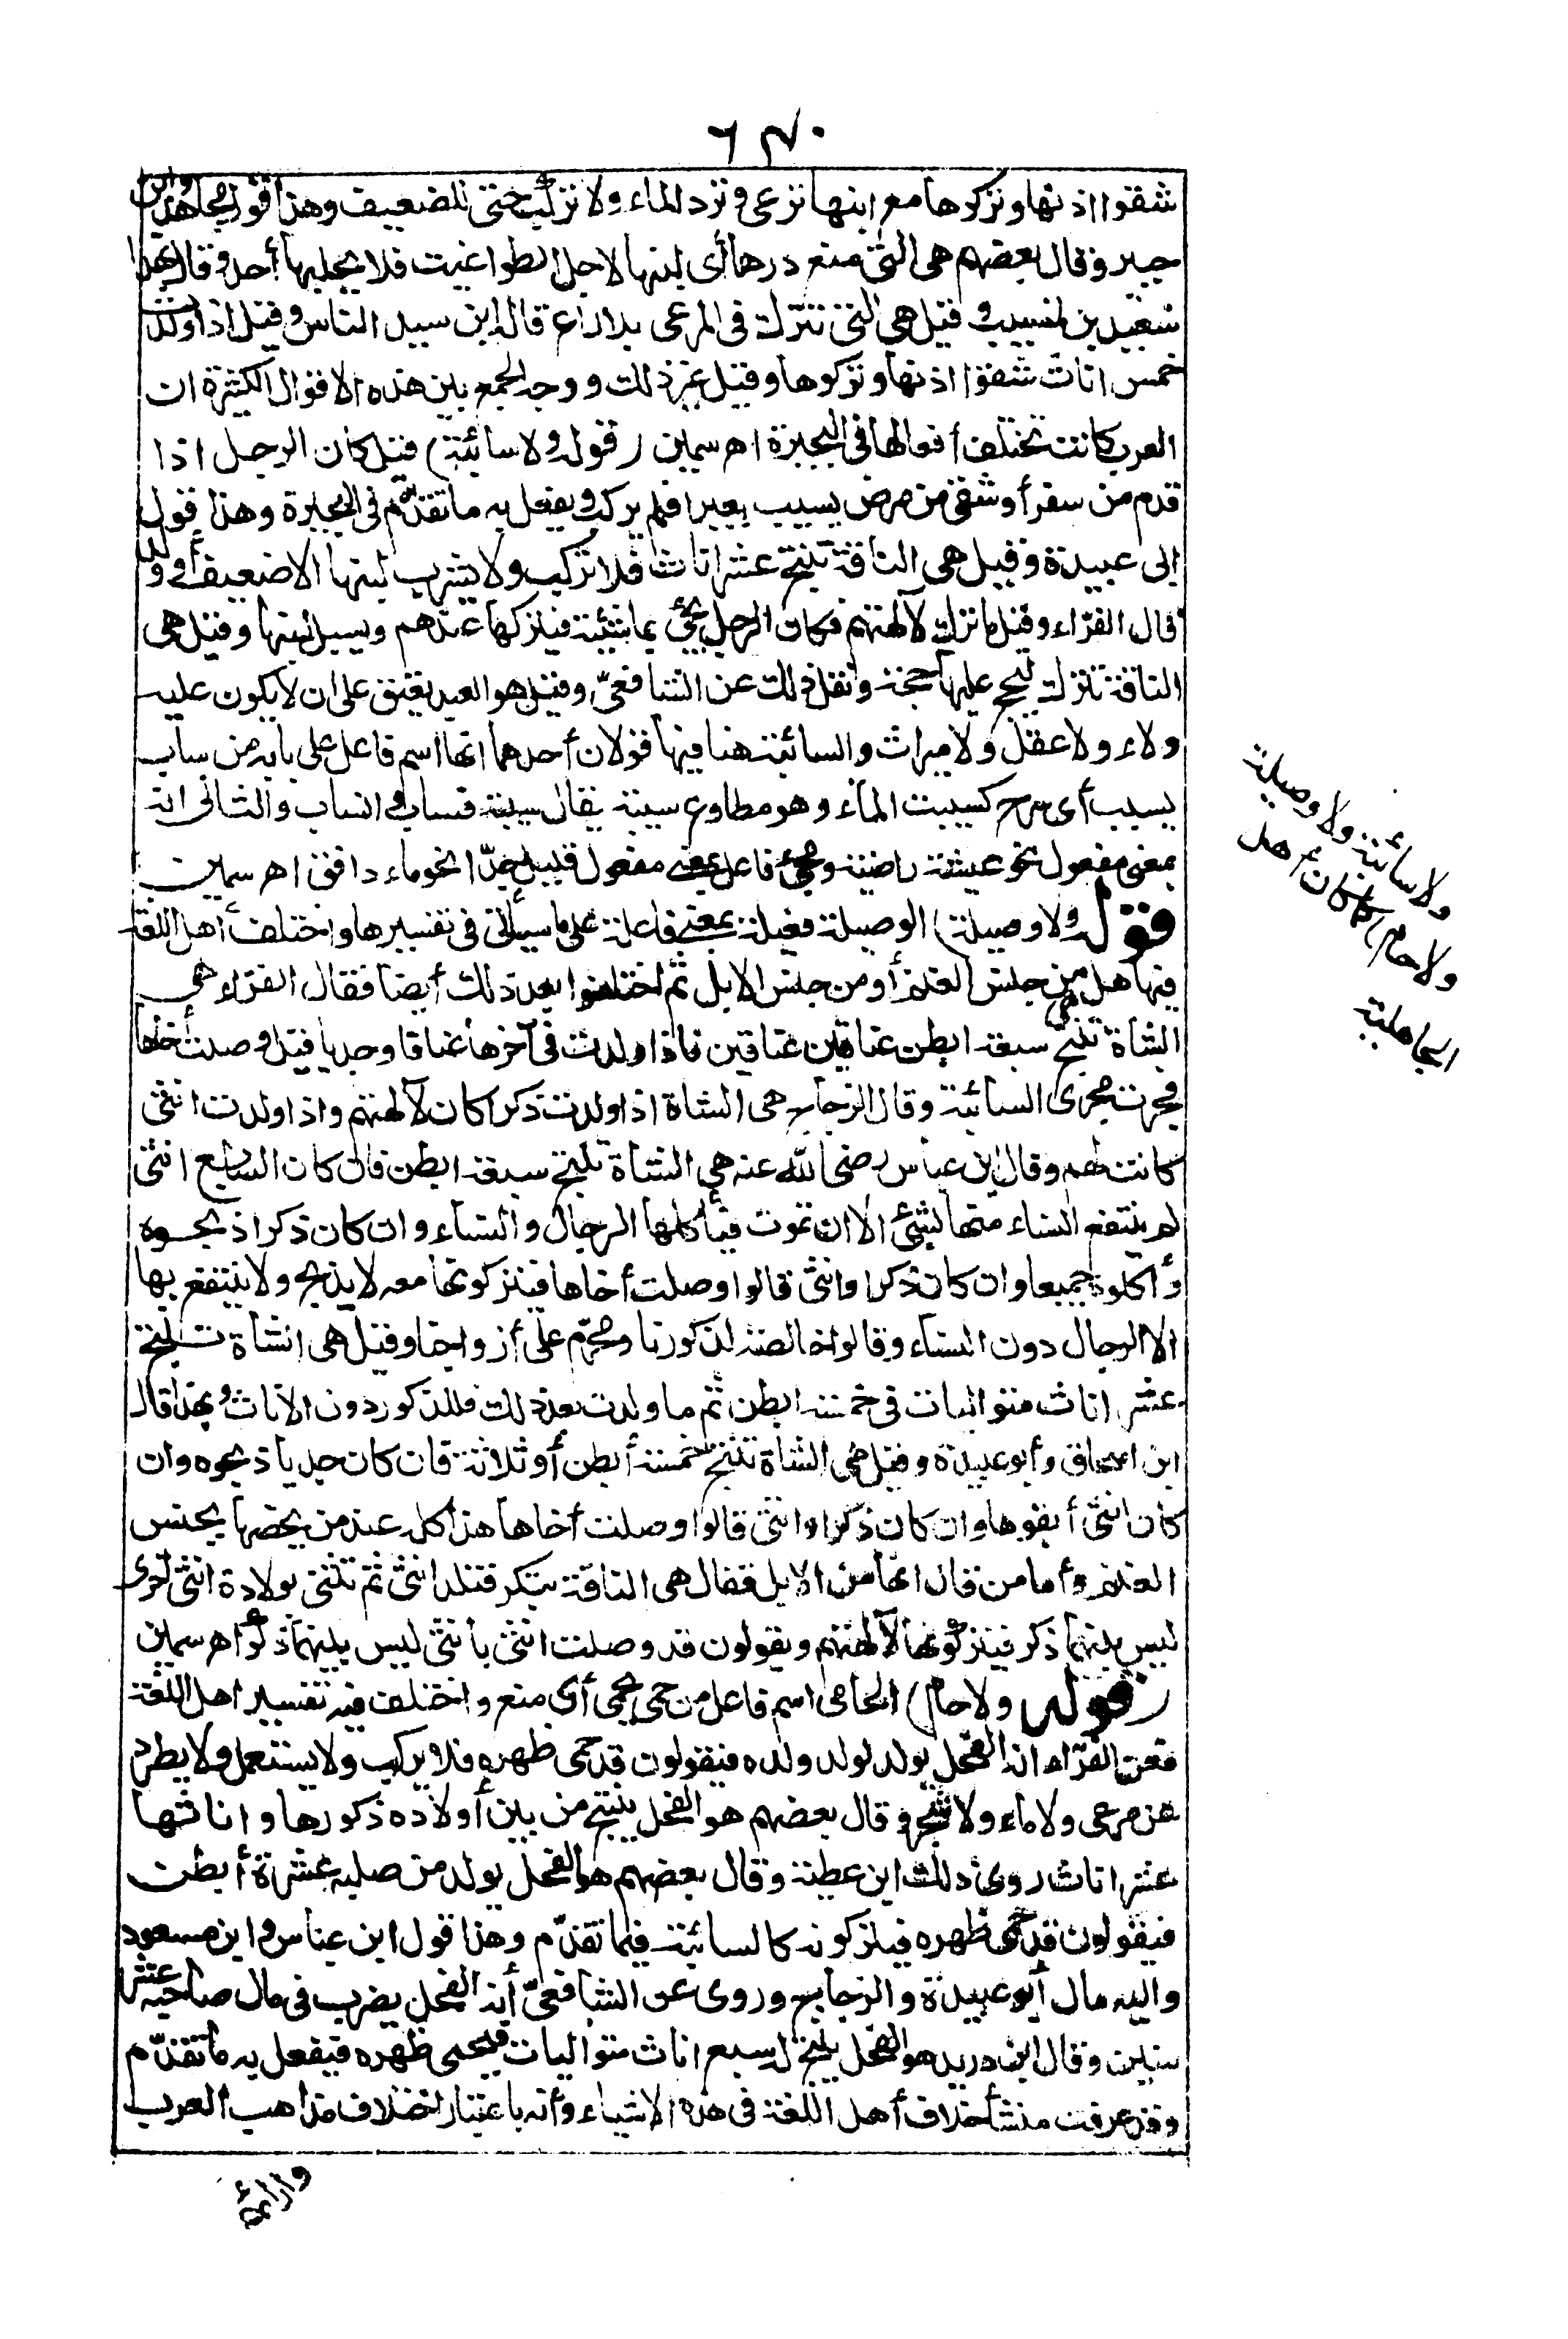 ٦٧٠
شقوا اذنها وتركوها مع ابنها ترعى وترد الماء ولا تركب حتى للضعيف وهذا قول مجاهد وابن
جبير وقال بعضهم هى التى منع درها أى لبنها لاجل الطواغيت فلا يحلبها أحد وقال بهذا
سعيد بن المسيب وقيل هى التى تترك فى المرعى بلا راع قاله ابن سيد الناس وقيل اذا ولدت
خمس اناث شقوا اذنها وتركوها وقيل غير ذلك ووجه الجمع بين هذه الاقوال الكثيرة ان
العرب كانت تختلف أفعالها فى البحيرة اهـ سمين (قوله ولا سائبة) قيل كان الرجل اذا
قدم من سفر أو شفى من مرض يسيب بعيرا فلم يركب ويفعل به ما تقدّم فى البحيرة وهذا قول
ابى عبيدة وقيل هى الناقة تنتج عشر اناث فلا تركب ولا يشرب لبنها الا ضعيف أو ولد
قال الفرّاء وقيل ما ترك لآلهتهم فكان الرجل يجئ بماشيته فيتركها عندهم ويسيل لبنها وقيل هى
الناقة تترك ليحج عليها حجة ونقل ذلك عن الشافعىّ وقيل هو العبد يعتق على ان لا يكون عليه
ولاء ولا عقل ولا ميراث والسائبة هنا فيها قولان أحدهما انها اسم فاعل على بابه من ساب
يسيب أى سرح كسيبت الماء وهو مطاوع سيبته يقال سيبته فساب وانساب والثانى انه
بمعنى مفعول نحو عيشة راضية ومجئ فاعل بمعنى مفعول قليل جدّا نحو ماء دافق اهـ سمين
(قوله ولا وصيلة) الوصيلة فعيلة بمعنى فاعلة على ما سيأتى فى تفسيرها واختلف أهل اللغة
فيها هل هى من جنس الغنم أو من جنس الابل ثم اختلفوا بعد ذلك أيضا فقال الفرّاء هى
الشاة تنتج سبعة ابطن عناقين عناقين فاذا ولدت فى آخرها عناقا وجديا قيل وصلت أخاها
فجرت مجرى السائبة وقال الزجاج هى الشاة اذا ولدت ذكرا كان لآلهتهم واذا ولدت انثى
كانت لهم وقال ابن عباس رضى الله عنه هى الشاة تنتج سبعة ابطن فان كان السابع انثى
لم ينتفع النساء منها بشئ الا ان تموت فيأكلها الرجال والنساء وان كان ذكرا ذبحوه
وأكلوه جميعا وان كان ذكرا وانثى قالوا وصلت أخاها فيتركونها معه لا يذبح ولا ينتفع بها
الا الرجال دون النساء وقالوا خالصة لذكورنا ومحرّم على أزواجنا وقيل هى الشاة تنتج
عشر اناث متواليات فى خمسة ابطن ثم ما ولدت بعد ذلك فللذكور دون الاناث وبهذا قال
ابن اسحاق وأبو عبيدة وقيل هى الشاة تنتج خمسة أبطن أو ثلاثة فان كان جديا ذبحوه وان
كان انثى أبقوها وان كان ذكرا وانثى قالوا وصلت أخاها هذا كله عند من يخصها بجنس
الغنم وأما من قال انها من الابل فقال هى الناقة تبتكر فتلد انثى ثم تثنى بولادة انثى أخرى
ليس بينهما ذكر فيتركونها لآلهتهم ويقولون قد وصلت انثى بأنثى ليس بينهما ذكر اهـ سمين
(قوله ولا حام) الحامى اسم فاعل من حمى يحمى أى منع واختلف فيه تفسير اهل اللغة
فعن الفرّاء انه الفحل يولد لولد ولده فيقولون قد حمى ظهره فلا يركب ولا يستعمل ولا يطرد
عن مرعى ولا ماء ولا شجر وقال بعضهم هو الفحل ينتج من بين أولاده ذكورها واناثها
عشر اناث روى ذلك ابن عطية وقال بعضهم هو الفحل يولد من صلبه عشرة أبطن
فيقولون قد حمى ظهره فيتركونه كالسائبة فيما تقدّم وهذا قول ابن عباس وابن مسعود
واليه مال أبو عبيدة والزجاج وروى عن الشافعىّ أنه الفحل يضرب فى مال صاحبه عشر
سنين وقال ابن دريد هو الفحل ينتج له سبع اناث متواليات فيحمى ظهره فيفعل به ما تقدّم
وقد عرفت منشأ خلاف أهل اللغة فى هذه الاشياء وأنه باعتبار اختلاف مذاهب العرب
ولا سائبة ولا وصيلة
ولا حام) كما كان أهل
الجاهلية